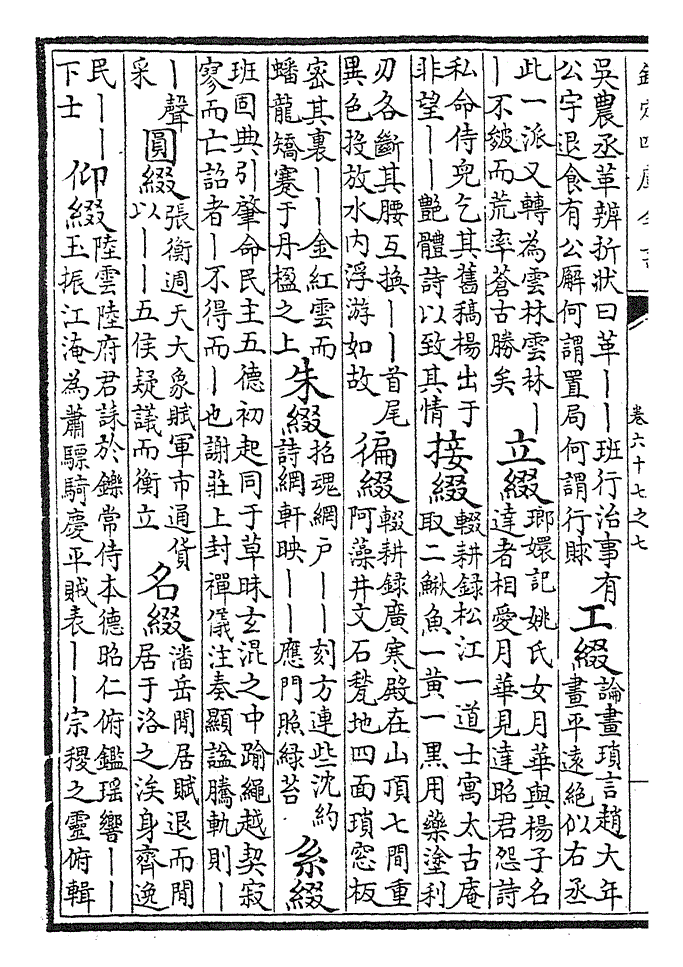 欽定四庫全書
卷六十七之七
吳農丞革辨折狀曰革——班行治事有
公宇退食有公廨何謂置局何謂行賕
工綴
論畫瑣言趙大年
畫平遠絶似右丞
此一派又轉為雲林雲林—
—不皴而荒率蒼古勝矣
立綴
瑯嬛記姚氏女月華與楊子名
達者相愛月華見達昭君怨詩
私命侍兒乞其舊稿楊出于
非望——艷體詩以致其情
接綴
輟耕録松江一道士寓太古庵
取二鰍魚一黃一黑用藥塗利
刃各斷其腰互換——首尾
異色投放水内浮游如故
徧綴
輟耕録廣寒殿在山頂七間重
阿藻井文石甃地四面瑣窓板
宻其裏——金紅雲而
蟠龍矯蹇于丹楹之上
朱綴
招魂網户——刻方連些沈約
詩網軒映——應門照緑苔
糸綴
班固典引肇命民主五德初起同于草昧玄混之中踰繩越契寂
寥而亡詔者—不得而—也謝莊上封禪儀注奏顯諡騰軌則—
—聲
采
圓綴
張衡週天大象賦軍市通貨
以——五侯疑議而衡立
名綴
潘岳閒居賦退而閒
居于洛之涘身齊逸
民——
下士
仰綴
陸雲陸府君誄於鑠常侍本德昭仁俯鑑瑶響——
玉振江淹為蕭驃騎慶平賊表——宗稷之靈俯輯